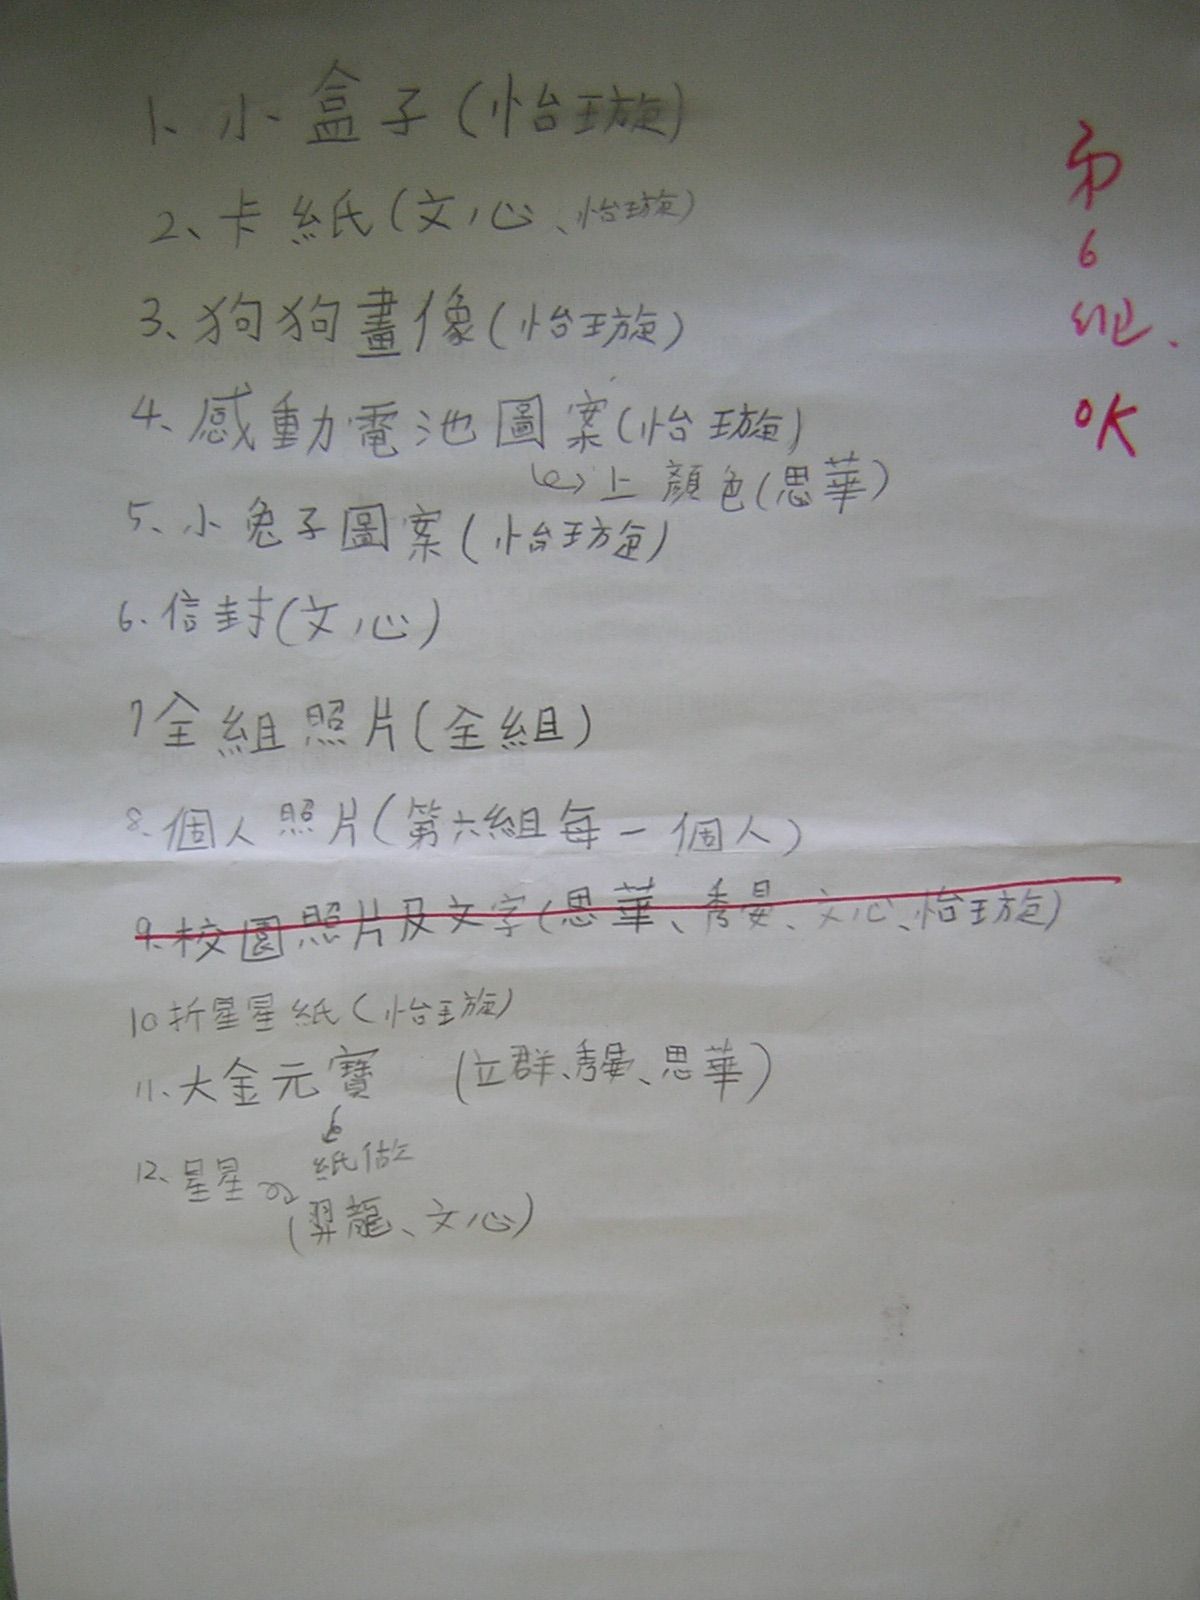 1、小盒子(怡璇)
2、卡紙(文心、怡璇)
3、狗狗畫像(怡璇)
4、感動電池圖案(怡璇)
上顏色(思華)
5、小兔子圖案(怡璇)
6、信封(文心)
7全組照片(全組)
8、個人照片(第六組每一個人)
9、校園照片及文字(思華、秀晏、文心、怡璇)
10折星星紙(怡璇)
11、大金元寶 (立群、秀晏、思華)
紙做
12、星星
(羿龍、文心)
第
6
組.
OK